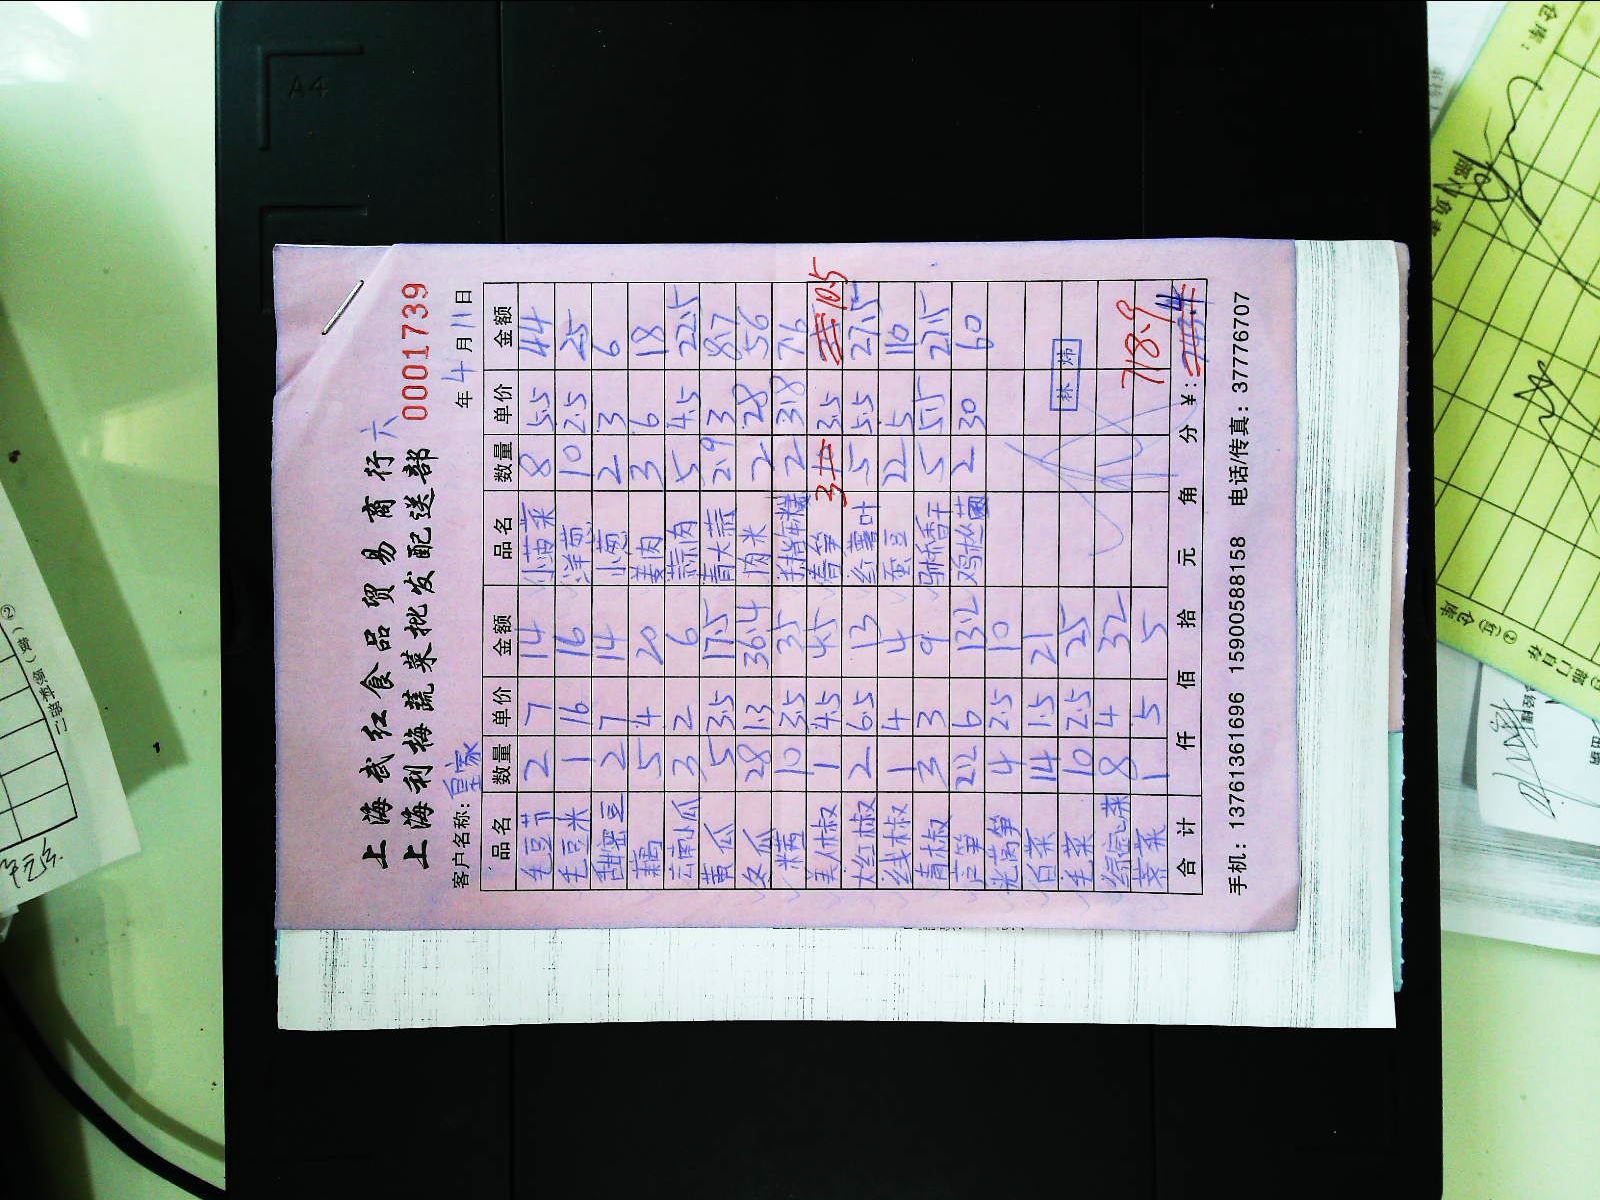 上海武红食品贸易商行 六
上海利梅蔬菜批发配送部 0001739
客户名称: 皇家 年 4 月 11 日
品名 数量 单价 金额 品名 数量 单价 金额
毛豆节 2 7 14 小菠菜 8 5.5 44
毛豆米 1 16 16 洋葱 10 2.5 25
甜密豆 2 7 14 小葱 2 3 6
藕 5 4 20 姜肉 3 6 18
云南小瓜 3 2 6 蒜肉 5 4.5 22.5
黄瓜 5 3.5 17.5 青大蒜 2.9 3 8.7
冬瓜 28 1.3 36.4 肉米 2 28 56
米茜 10 3.5 35 2 38 76
美人椒 1 4.5 4.5 莴笋 3 3.5 10.5
大红椒 2 6.5 13 红薯叶 5 5.5 27.5
线椒 1 4 4 蚕豆 22 5 110
青椒 3 3 9 香干 5 5.5 27.5
芦笋 2.2 6 13.2 鸡枞菌 2 30 60
光莴笋 4 2.5 10
白菜 14 1.5 21
毛菜 10 2.5 25 林炜
8 4 32
荠菜 1 5 5 718.9
合计 仟 佰 拾 元 角 分 ¥:
手机: 13761361696 15900588158 电话/传真: 37776707
A4
② (黄) 领料部门
仓库:
部门负责